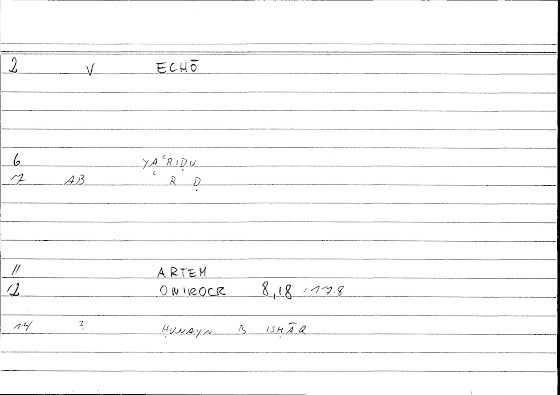 2 V ECHŌ
6 YAʿRIḌU
7 AB ʿ R Ḍ
11 ARTEM
12 ONIROCR 8,18 :17.8
14 ? ḤUNAYN B ISḤĀQ